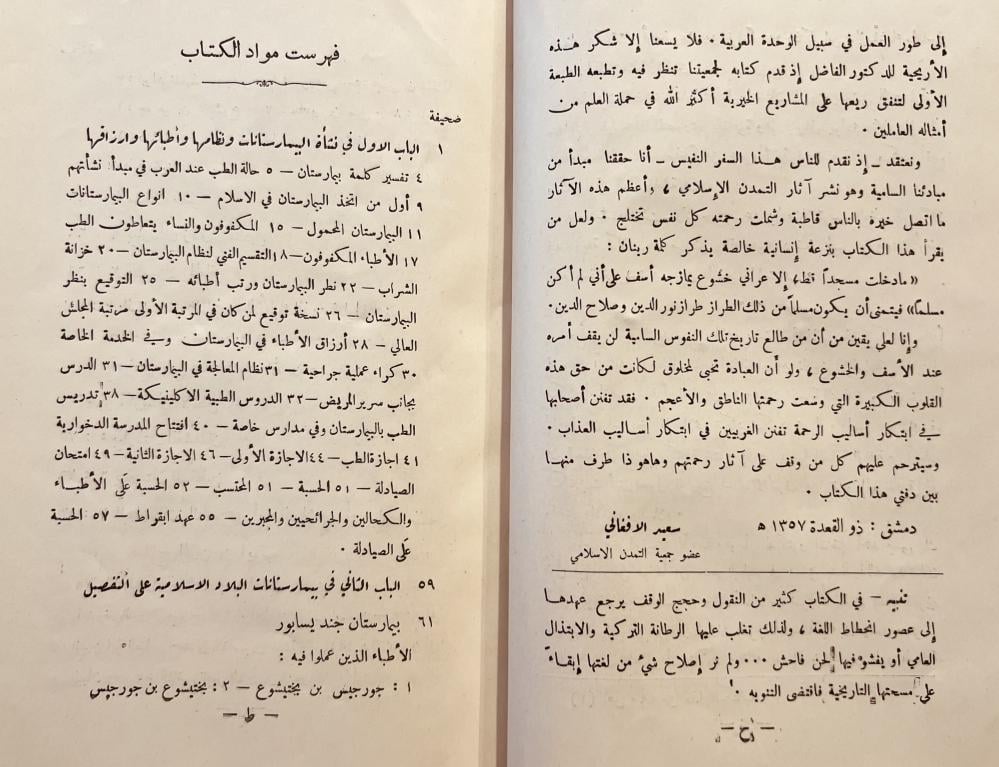 إلى طور العمل في سبيل الوحدة العربية . فلا يسعنا إلا شكر هذه
الأريحية للدكتور الفاضل إذ قدم كتابه لجمعيتنا تنظر فيه وتطبعه الطبعة
الأولى لتنفق ريعها على المشاريع الخيرية أكثر الله في حملة العلم من
أمثاله العاملين .
ونعتقد ــ إذ نقدم للناس هذا السفر النفيس ــ أنا حققنا مبدأ من
مبادئنا السامية وهو نشر آثار التمدن الإسلامي ، وأعظم هذه الآثار
ما اتصل خيره بالناس قاطبة وشملت رحمته كل نفس تختلج . ولعل من
يقرأ هذا الكتاب بنزعة إنسانية خالصة يذكر كلمة رينان :
« مادخلت مسجداً قط، إلا عراني خشوع يمازجه أسف على أني لم أكن
مسلماً» فيتمنى أن يكون مسلماً من ذلك الطراز طراز نور الدين وصلاح الدين.
وإنا لعلى يقين من أن من طالع تاريخ تلك النفوس السامية لن يقف أمره
عند الأسف والخشوع ، ولو أن العبادة تحبى لمخلوق لكانت من حق هذه
القلوب الكبيرة التي وسعت رحمتها الناطق والأعجم . فقد تفنن أصحابها
في ابتكار أساليب الرحمة تفنن الغربيين في ابتكار أساليب العذاب .
وسيترحم عليهم كل من وقف على آثار رحمتهم وهاهو ذا طرف منها
بين دفتي هذا الكتاب .
دمشق : ذو القعدة ١٣٥٧ هـ سعيد الافغاني
عضو جمعية التمدن الاسلامي
تنبيه – في الكتاب كثير من النقول وحجج الوقف يرجع عهدها
إلى عصور انحطاط اللغة ، ولذلك تغلب عليها الرطانة التركية والابتذال
العامي أو يفشو فيها لحن فاحش ... ولم نر إصلاح شيء من لغتها إبقاءً
على مسحتها التاريخية فاقتضى التنويه .
– ح –
فهرست مواد الكتاب
صحيفة
١ الباب الاول في نشأة البيمارستانات ونظامها وأطبائها وارزاقها
٤ تفسير كلمة بيمارستان – ٥ حالة الطب عند العرب في مبدأ نشأتهم
٩ أول من اتخذ البيمارستان في الاسلام – ١٠ انواع البيمارستانات
١١ البيمارستان المحمول – ١٥ المكفوفون والنساء يتعاطون الطب
١٧ الأطباء المكفوفون – ١٨ التقسيم الفني لنظام البيمارستان – ٢٠ خزانة
الشراب – ٢٢ نظر البيمارستان ورتب أطبائه – ٢٥ التوقيع بنظر
البيمارستان – ٢٦ نسخة توقيع لمن كان في المرتبة الأولى مرتبة المجلس
العالي – ٢٨ أرزاق الأطباء في البيمارستان وفي الخدمة الخاصة
٣٠ كراء عملية جراحية – ٣١ نظام المعالجة في البيمارستان – ٣١ الدرس
بجانب سرير المريض – ٣٢ الدروس الطبية الاكلينيكة – ٣٨ تدريس
الطب بالبيمارستان وفي مدارس خاصة – ٤٠ افتتاح المدرسة الدخوارية
٤١ اجازة الطب – ٤٤ الاجازة الأولى – ٤٦ الاجازة الثانية – ٤٩ امتحان
الصيادلة – ٥١ الحسبة – ٥١ المحتسب – ٥٢ الحسبة على الأطباء
والكحالين والجرائحيين والمجبرين – ٥٥ عهد ابقراط – ٥٧ الحسبة
على الصيادلة .
٥٩ الباب الثاني في بيمارستانات البلاد الاسلامية على التفصيل
٦١ بيمارستان جند يسابور
الأطباء الذين عملوا فيه :
١ : جورجيس بن بختيشوع – ٢ : بختيشوع بن جورجيس
– ط –